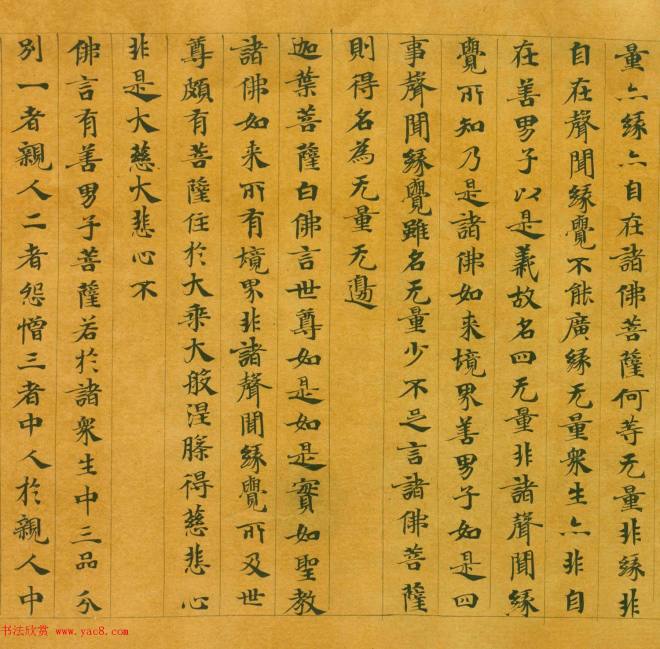 量亦緣亦自在諸佛菩薩何等无量非緣非
自在聲聞緣覺不能廣緣无量衆生亦非自
在善男子以是義故名四无量非諸聲聞緣
覺所知乃是諸佛如来境界善男子如是四
事聲聞緣覺雖名无量少不足言諸佛菩薩
則得名為无量无邊
迦葉菩薩白佛言世尊如是如是實如聖教
諸佛如来所有境界非諸聲聞緣覺所及世
尊頗有菩薩住於大乘大般涅槃得慈悲心
非是大慈大悲心不
佛言有善男子菩薩若於諸衆生中三品分
別一者親人二者怨憎三者中人於親人中
书法欣赏 www.yac8.com